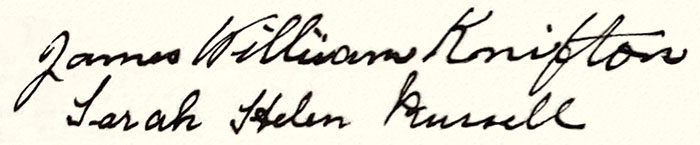 James William Knifton
Sarah Helen Russell